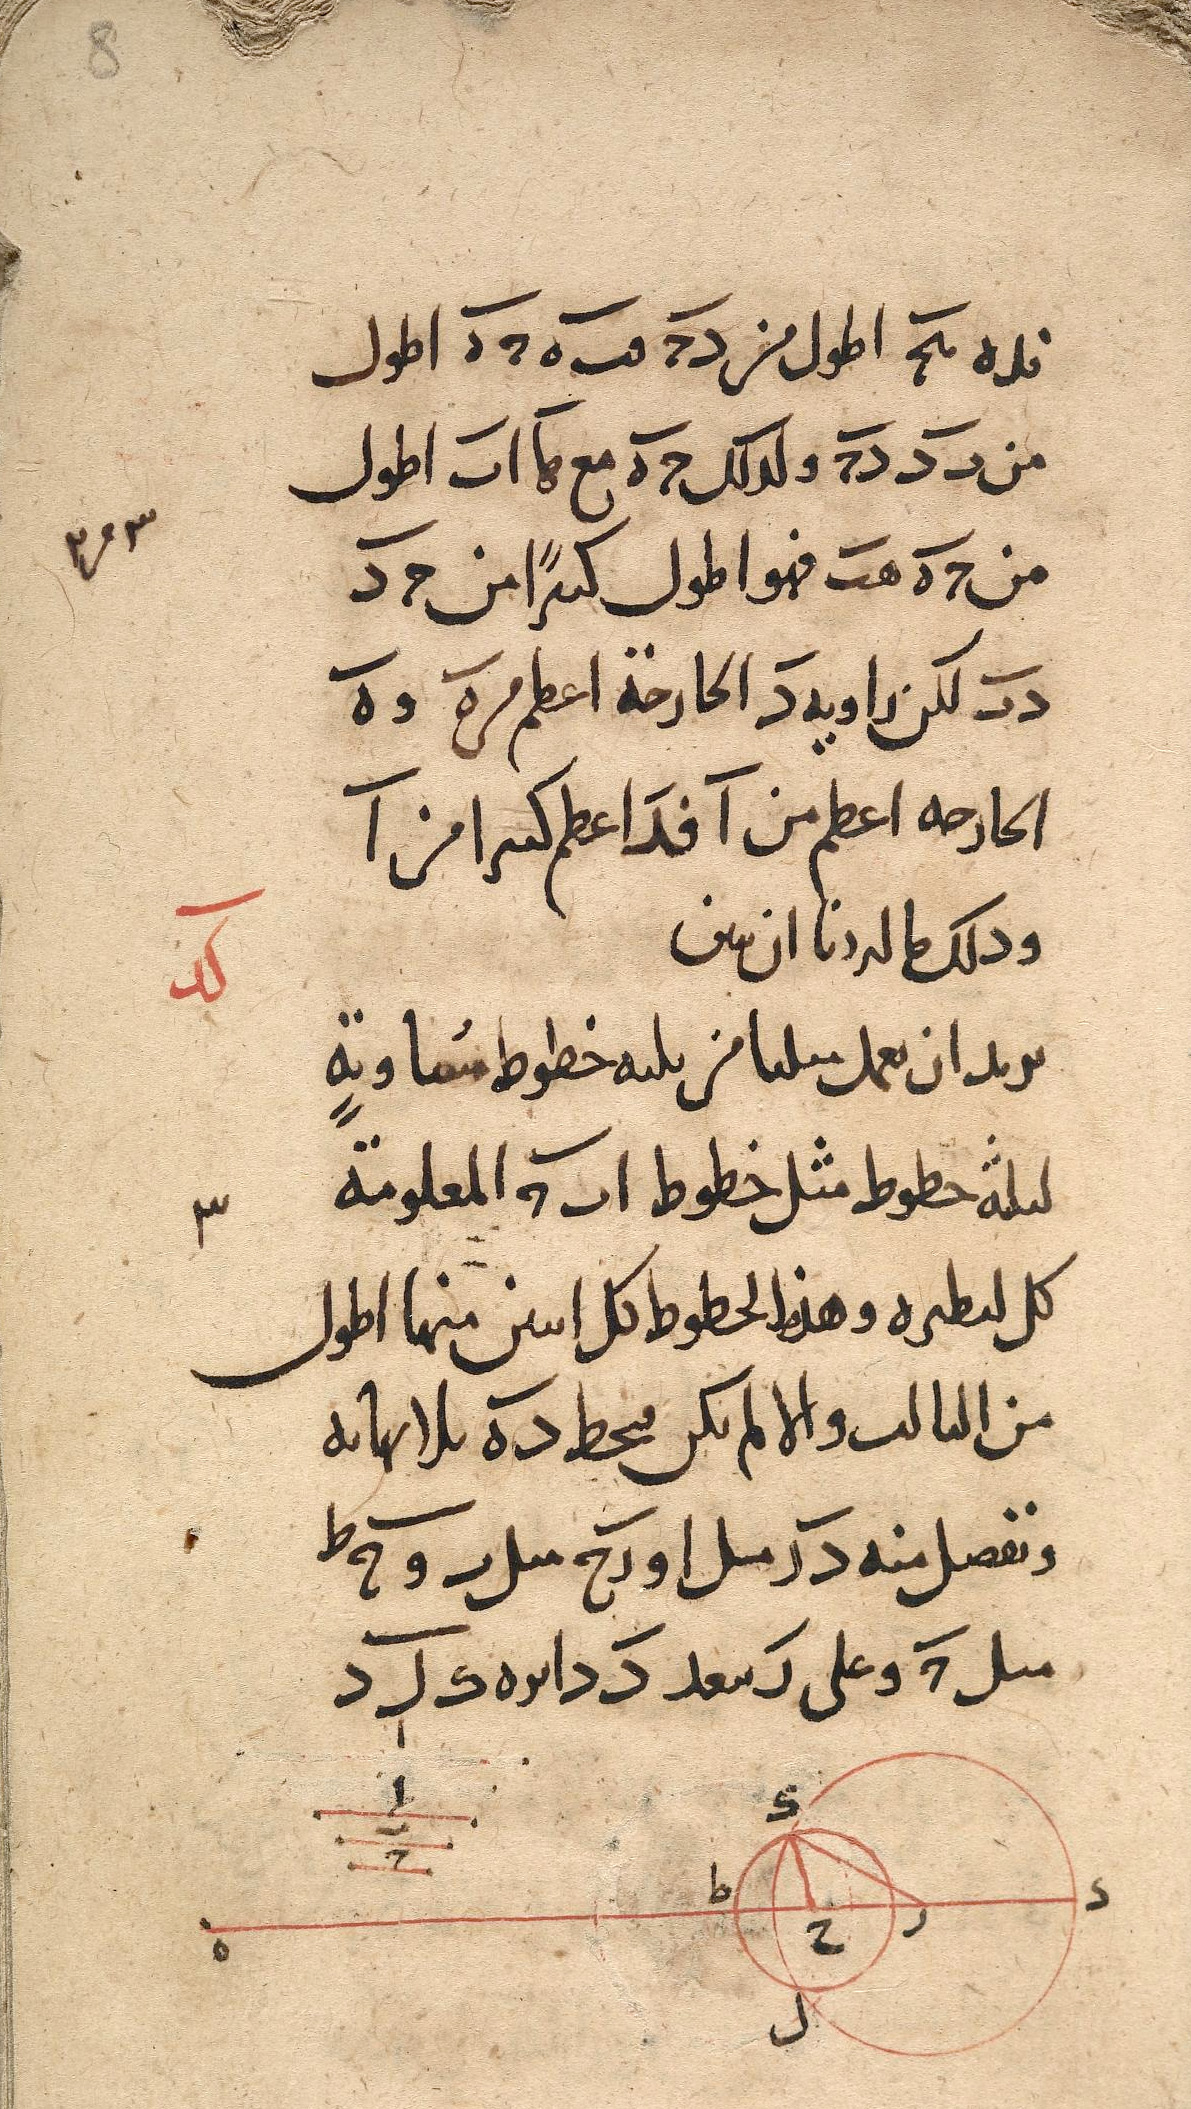 8
فلاه هح اطول من دح فب ه ح ه اطول
من ب د دح ولذلك ح ه مع ها اب اطول
من ح ه هب فهو اطول كثيرًا من ح د
د ب لكن زاوية د الخارجة اعظم من ه و ه
الخارجه اعظم من ا فد اعظم كثيرا من ا
وذلك ما اردنا ان نبين
كد
نريد ان نعمل مثلثا من ثلثه خطوط متساويةٍ
لثلثة خطوط مثل خطوط ا ب ح المعلومة
٣
كل لنظيره وهذه الخطوط كل اثنين منها اطول
من الثالث والا لم يكن فيخط د ه بلا نهايه
ونفصل منه د ز مثل ا و ز ح مثل ب و ح ط
مثل ح وعلى ز ببعد ز د دايره د ل ى
ا
ب
ح
ى
ط
د
ح
ر
ه
ل